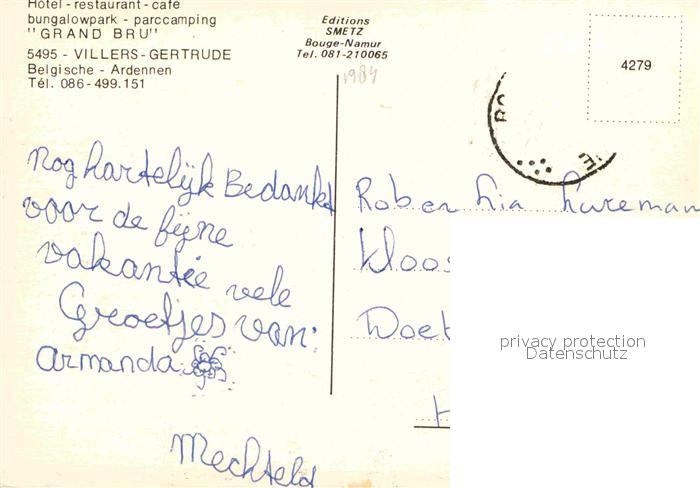 Hôtel - restaurant - café
bungalowpark - parccamping
"GRAND BRU"
5495 - VILLERS - GERTRUDE
Belgische - Ardennen
Tél. 086 - 499.151
Editions
SMETZ
Bouge-Namur
Tel. 081-210065
1984
4279
Nog hartelijk Bedankt
voor de fijne
vakantie vele
Groetjes van:
Armanda
Mechteld
Rob en Lia
privacy protection
Datenschutz